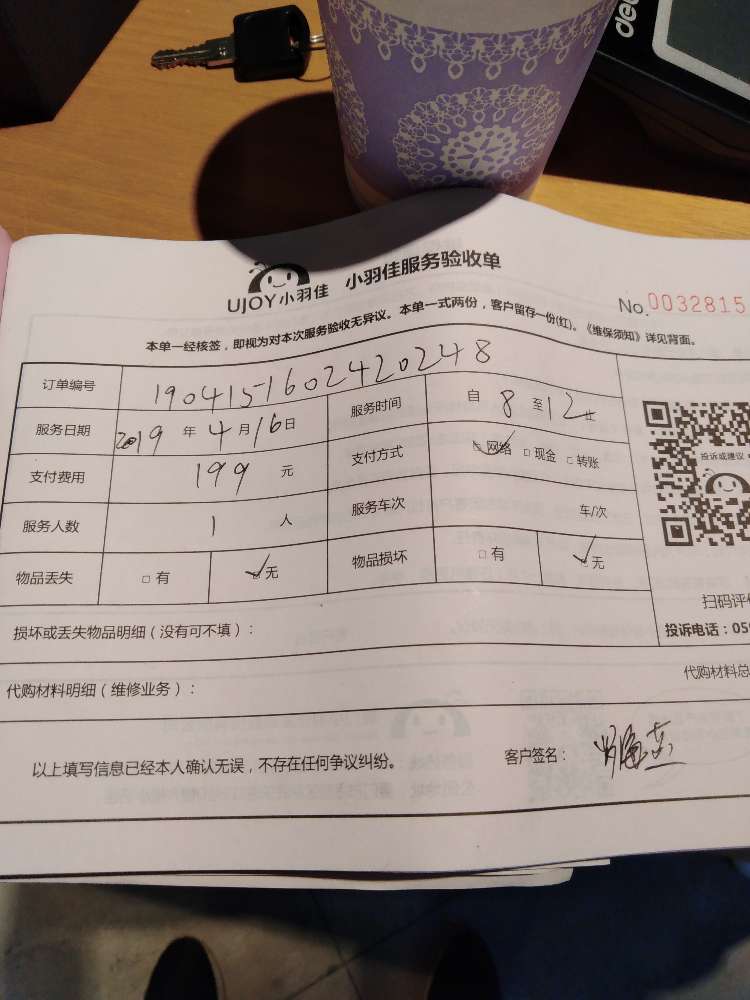 dee
UJOY小羽佳 小羽佳服务验收单
No.0032815
本单一经核签，即视为对本次服务验收无异议。本单一式两份，客户留存一份(红)。《维保须知》详见背面。
订单编号 19041516024420248
服务日期 2019 年 4 月 16 日 服务时间 自 8 至 12
支付费用 199 元 支付方式 网络 □ 现金 □ 转账
投诉或建议
服务人数 1 人 服务车次 车/次
物品丢失 □ 有 无 物品损坏 □ 有 无
扫码评价
损坏或丢失物品明细（没有可不填）：
投诉电话：059
代购材料明细（维修业务）： 代购材料总
以上填写信息已经本人确认无误，不存在任何争议纠纷。 客户签名：